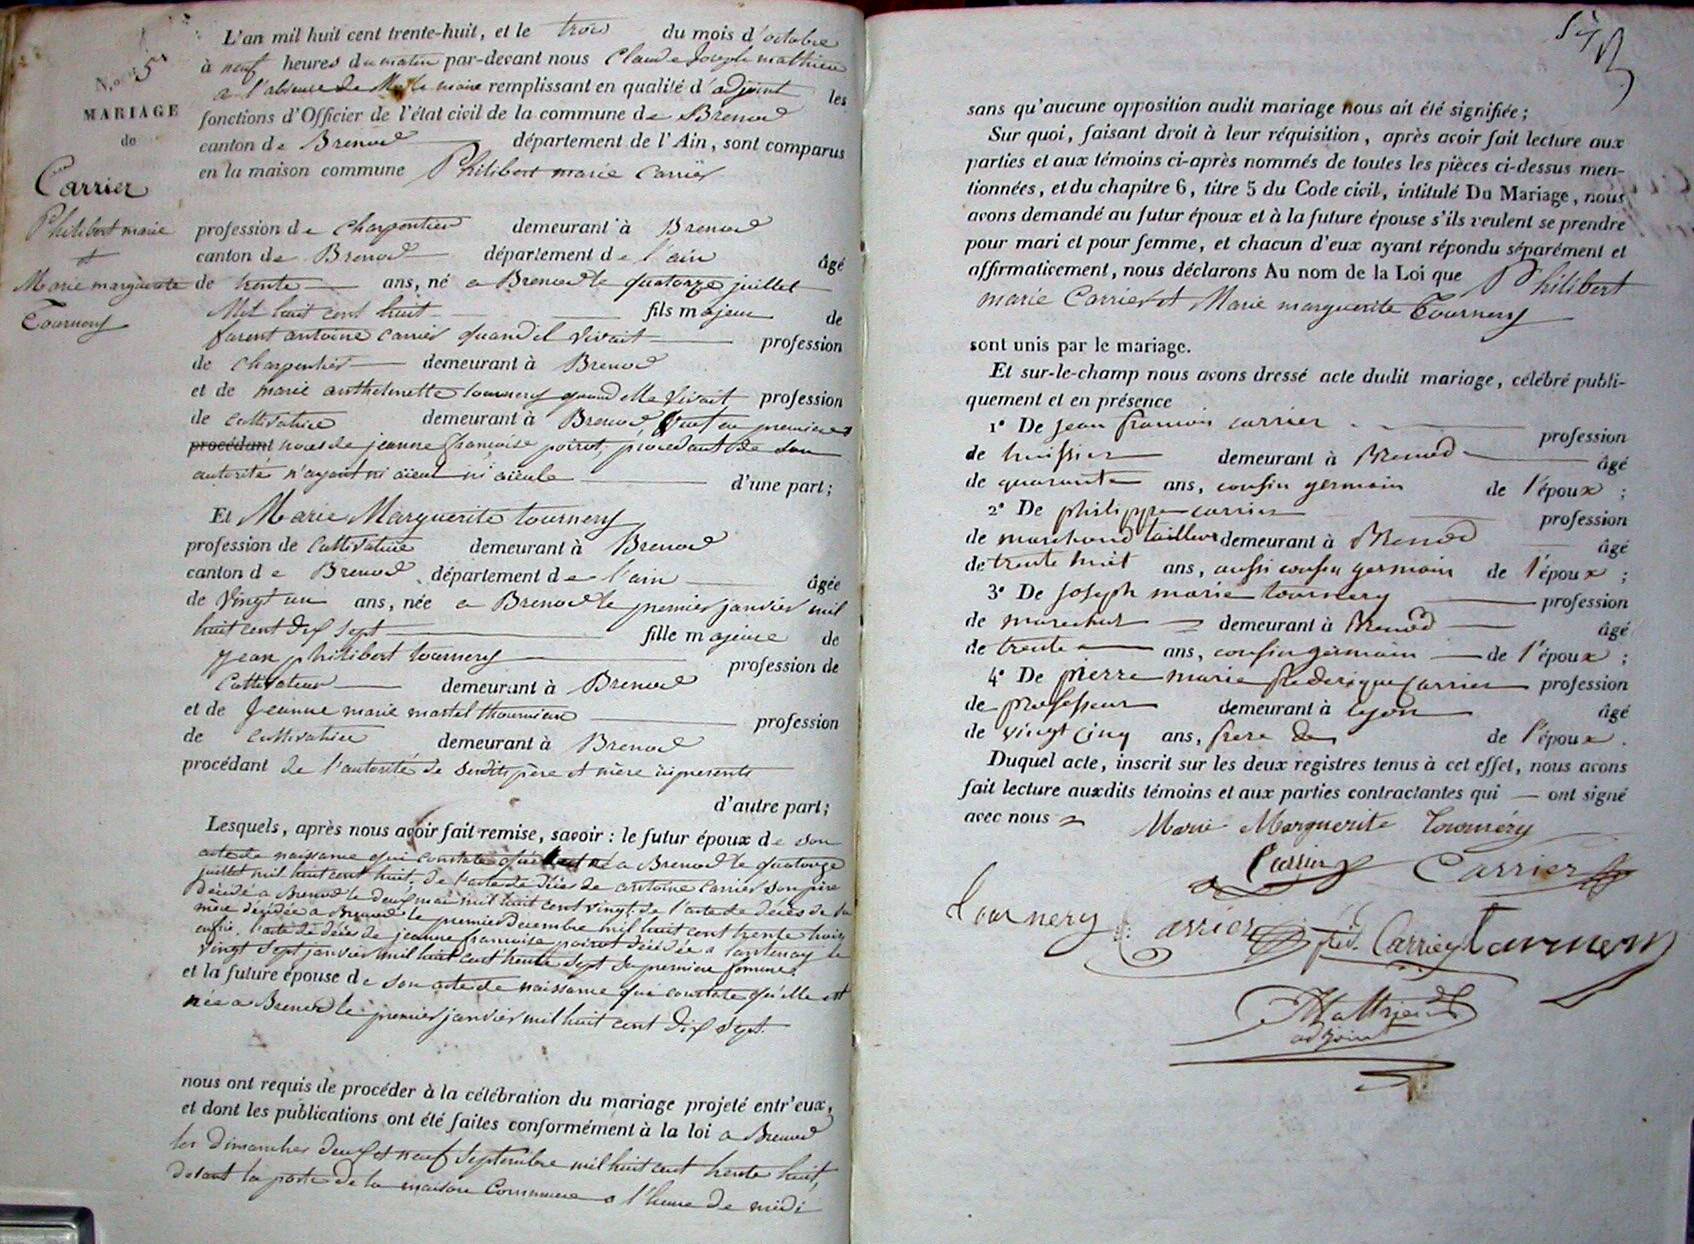 L'an mil huit cent trente-huit, et le trois du mois d'octobre
à neuf heures du matin par-devant nous Claude Joseph mathieu
a l'absence de Mr le maire remplissant en qualité d'adjoint les
fonctions d'Officier de l'état civil de la commune de Brenod
canton de Brenod département de l'Ain, sont comparus
en la maison commune Philibert marie Carrier
N.o 5
MARIAGE
de
Carrier
Philibert marie
et
Marie marguerite
Tournery
profession de charpentier demeurant à Brenod
canton de Brenod département de l'ain âgé
de trente ans, né a Brenod le quatorze juillet
Mil huit cent huit fils majeur de
furent antoine carrier quand il vivait profession
de charpentier demeurant à Brenod
et de marie anthelmette tournery quand elle vivait profession
de cultivatrice demeurant à Brenod veuf en premieres
procédant noces de jeanne françoise poirot, procedant de son
autorité n'ayant ni aieul ni aieule d'une part;
Et Marie Marguerite tournery
profession de cultivatrice demeurant à Brenod
canton de Brenod département de l'ain âgée
de vingt un ans, née a Brenod le premier janvier mil
huit cent dix sept fille majeure de
jean philibert tournery profession de
cultivateur demeurant à Brenod
et de Jeanne marie martel thournieux profession
de cultivatrice demeurant à Brenod
procédant de l'autorité de sesdits père et mère ici presents
d'autre part;
Lesquels, après nous avoir fait remise, savoir : le futur époux de son
acte de naissance qui constate qu'il est né a Brenod le quatorze
juillet mil huit cent huit; de l'acte de décès de antoine carrier son père
décédé a Brenod le deux mai mil huit cent vingt; de l'acte de décès de sa
mère décédée a Brenod le premier decembre mil huit cent trente trois
enfin l'acte de décès de jeanne françoise poirot décédée a lantenay le
vingt sept janvier mil huit cent trente sept sa premiere femme
et la future épouse de son acte de naissance qui constate qu'elle est
née a Brenod le premier janvier mil huit cent dix sept.
nous ont requis de procéder à la célébration du mariage projeté entr'eux,
et dont les publications ont été faites conformément à la loi a Brenod
les dimanches deux et neuf septembre mil huit cent trente huit,
devant la porte de la maison commune a l'heure de midi
sans qu'aucune opposition audit mariage nous ait été signifiée;
Sur quoi, faisant droit à leur réquisition, après avoir fait lecture aux
parties et aux témoins ci-après nommés de toutes les pièces ci-dessus men-
tionnées, et du chapitre 6, titre 5 du Code civil, intitulé Du Mariage, nous
avons demandé au futur époux et à la future épouse s'ils veulent se prendre
pour mari et pour femme, et chacun d'eux ayant répondu séparément et
affirmativement, nous déclarons Au nom de la Loi que Philibert
marie Carrier et Marie marguerite Tournery
sont unis par le mariage.
Et sur-le-champ nous avons dressé acte dudit mariage, célébré publi-
quement et en présence
1° De jean francois carrier profession
de huissier demeurant à Brenod âgé
de quarante ans, cousin germain de l'époux;
2° De philippe carrier profession
de marchand tailleur demeurant à Brenod âgé
de trente huit ans, aussi cousin germain de l'époux;
3° De Joseph marie tournery profession
de marechal demeurant à Brenod âgé
de trente ans, cousin germain de l'époux;
4° De pierre marie frederique Carrier profession
de professeur demeurant à Lyon âgé
de vingt cinq ans, frere de de l'époux.
Duquel acte, inscrit sur les deux registres tenus à cet effet, nous avons
fait lecture auxdits témoins et aux parties contractantes qui ont signé
avec nous
Marie Marguerite Tournéry
Carrier Carrier
Tournery Carrier fréd. Carrier tournery
Mathieu
adjoint